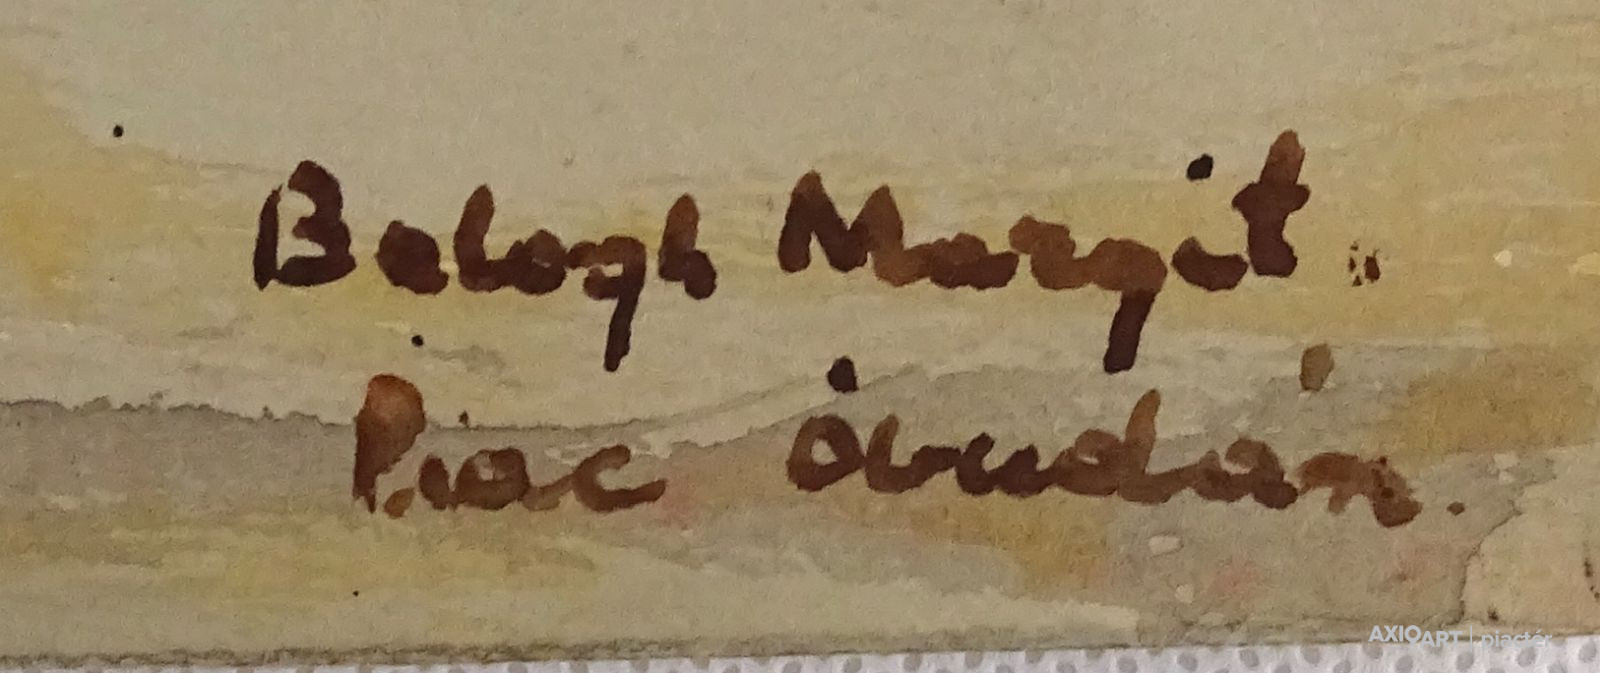 Balogh Margit.
Piac Óbudán.
AXIOART | piactér